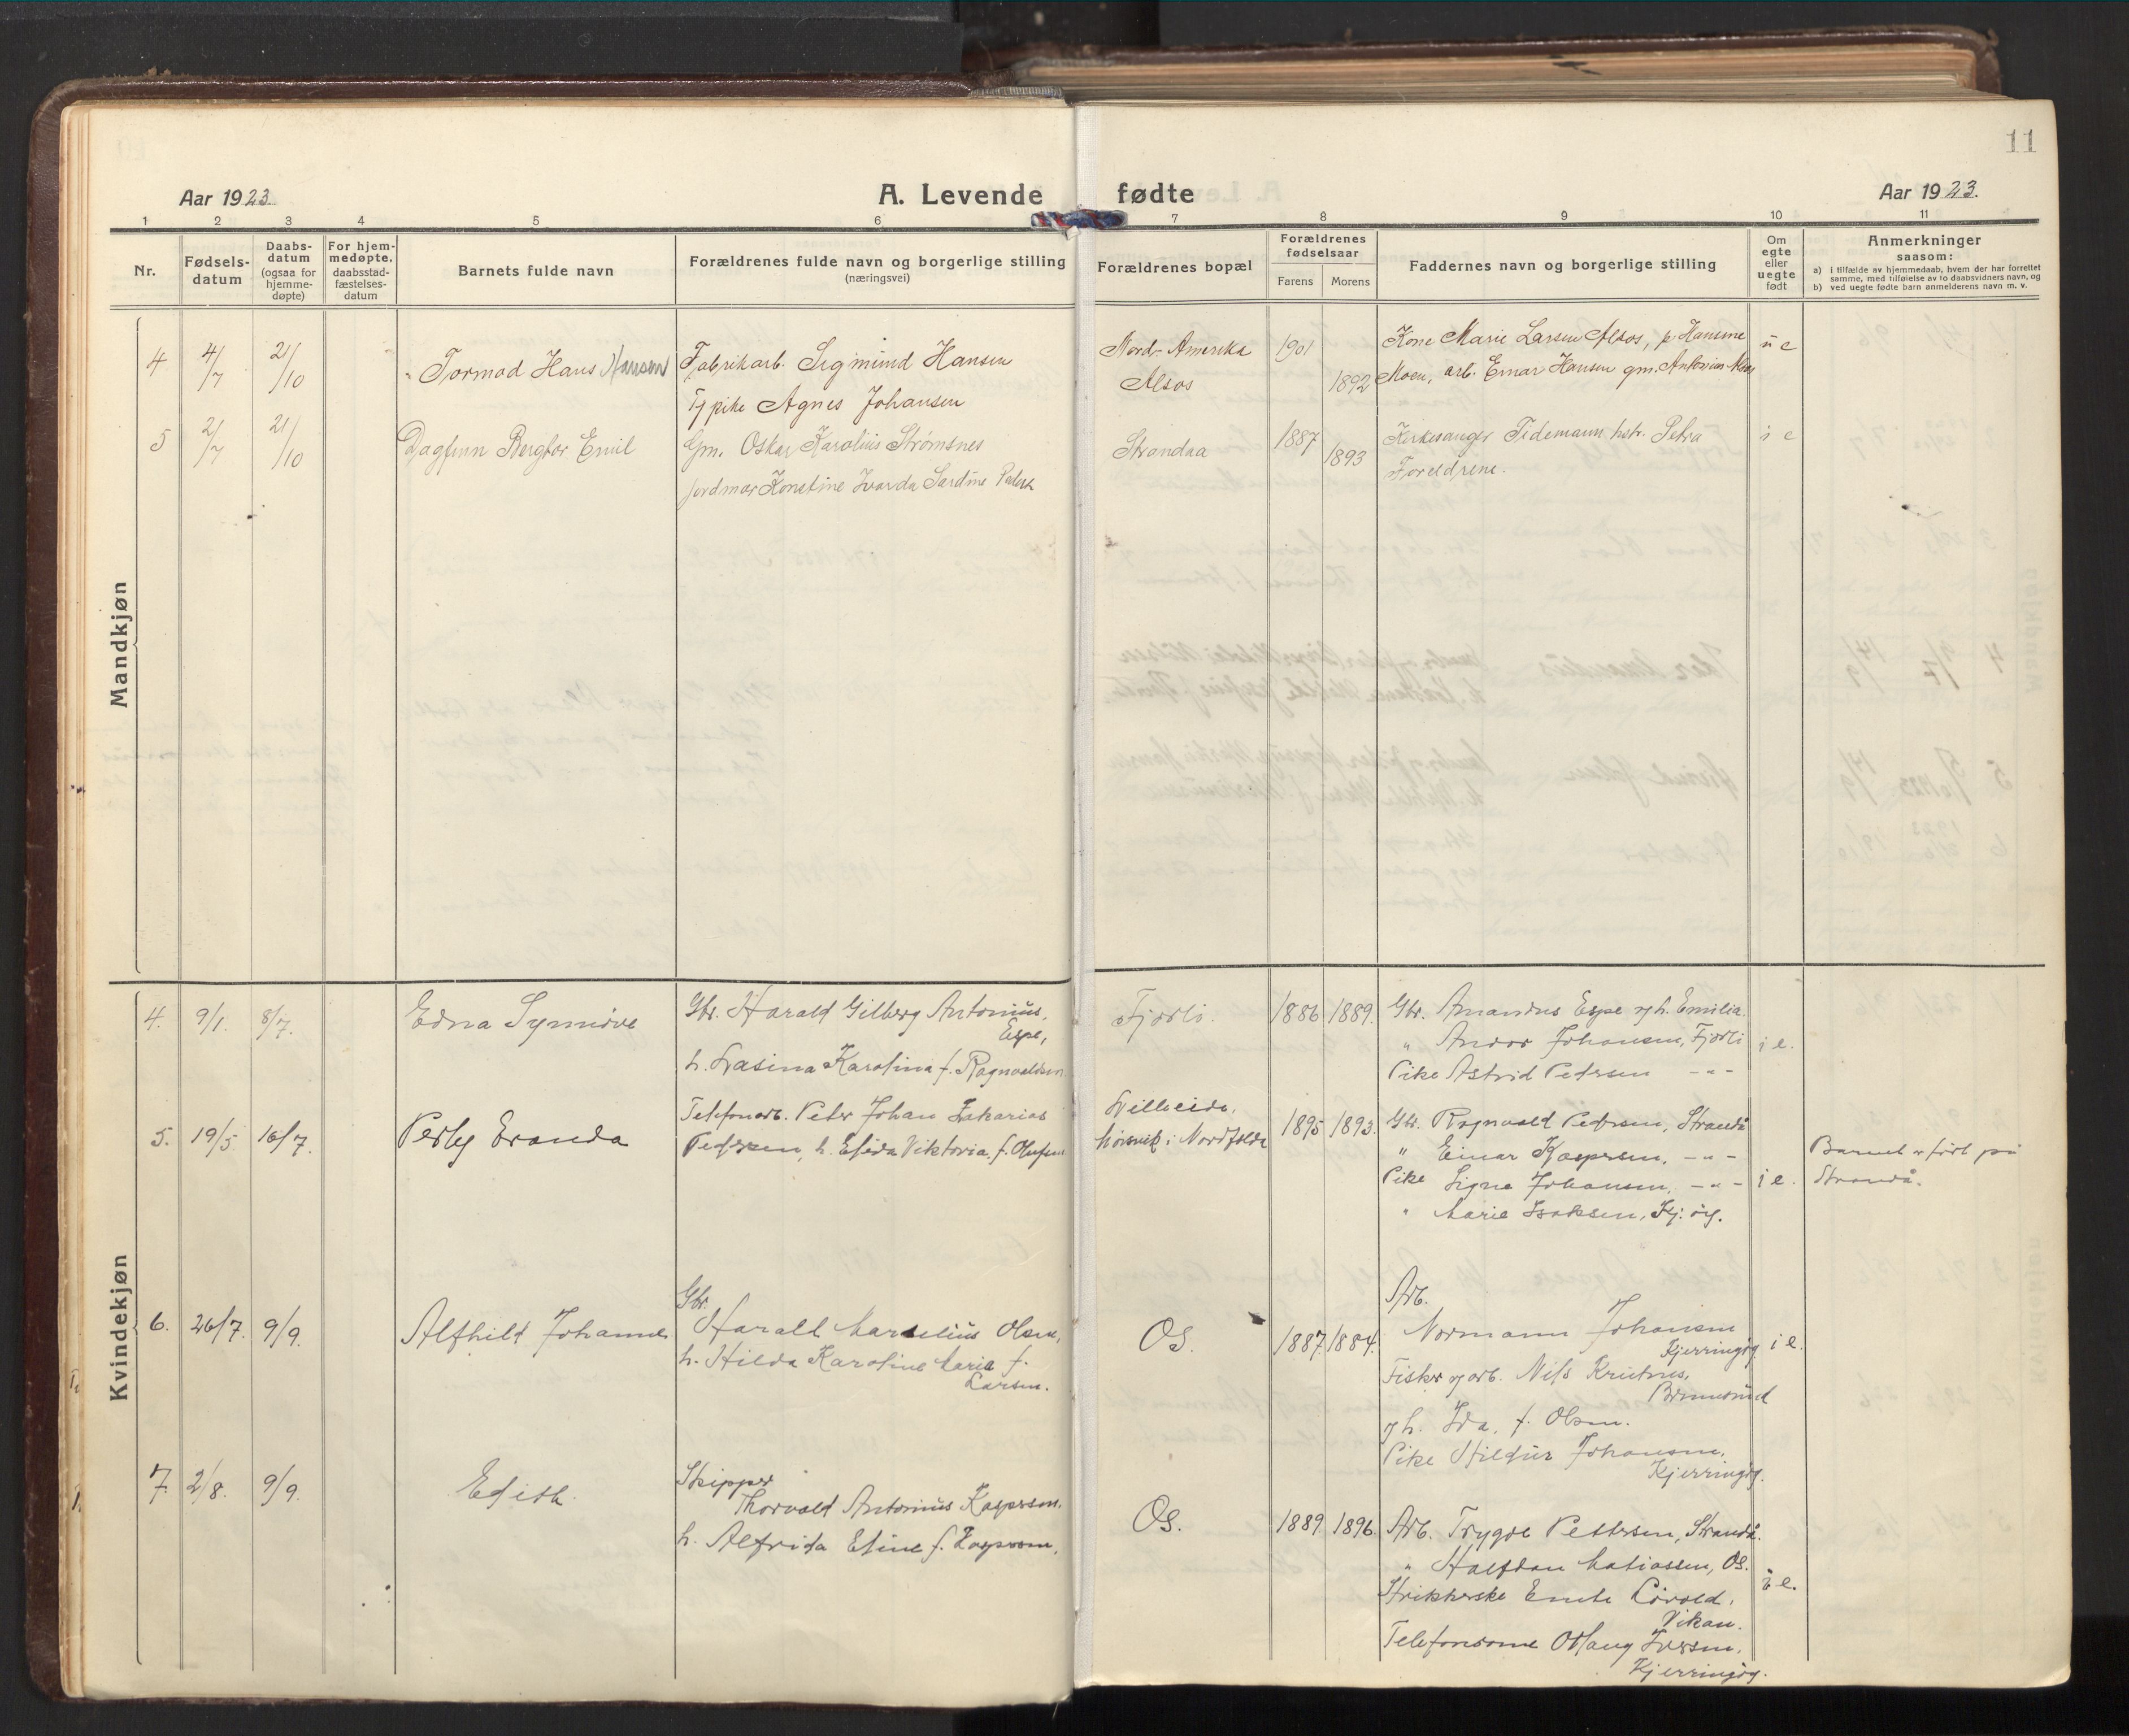 11
Aar 1923.
A. Levende fødte
Aar 1923.
1 2 3 4 5 6 7 8 9 10 11
Nr.
Fødsels-
datum
Daabs-
datum
(ogsaa for
hjemme-
døpte)
For hjem-
medøpte,
daabsstad-
fæstelses-
datum
Barnets fulde navn
Forældrenes fulde navn og borgerlige stilling
(næringsvei)
Forældrenes bopæl
Forældrenes
fødselsaar
Farens Morens
Faddernes navn og borgerlige stilling
Om
egte
eller
uegte
født
Anmerkninger
saasom:
a) i tilfælde av hjemmedaab, hvem der har forrettet
samme, med tilføielse av to daabsvidners navn, og
b) ved uegte fødte barn anmelderens navn m. v.
Mandkjøn
4 4/7 21/10 Tormod Hans Hansen
Fabrikarb. Sigmund Hansen
Tj pike Agnes Johansen
Nord-Amerika
Alsos
1901
1892
Kone Marie Larsen Alsos, p. Hansine
Moen, arb. Einar Hansen gm. Antonius Alsos
u e
5 2/7 21/10 Dagfinn Bergtor Emil
Gm. Oskar Karolius Strømsnes
jordmor Konstine Ivarda Sardine
Strandaa
1887
1893
Kirkesanger Tidemann hstr. Petra
Foreldrene.
i e
Kvindekjøn
4. 9/1. 8/7. Edna Synnöve
Gbr. Harald Gilberg Antonius,
Espe,
h. Lasina Karolina f. Ragnvaldsen
Fjorli.
1886 1889.
Gbr. Amandus Espe og h. Emilia.
" Andor Johansen, Fjorli
Pike Astrid Petersen -"-
i e.
5. 19/5 16/7. Perly Evanda
Telefonarb. Peter Johan Zakarias
Pedersen, h. Elida Viktoria, f. Olufsen
Lilleeide,
Mörsvik i Nordfolda
1895 1893.
Gbr. Ragnvald Pedersen, Strandå
" Einar Kaspersen, -"-
Pike Signe Johansen, -"-
" Marie Isaksen, Kj.öy.
i e.
Barnet er födt på
Strandå.
6. 26/7. 9/9. Alfhild Johanne
Gbr.
Harald Marselius Olsen,
h. Hilda Karoline Maria f.
Larsen.
Os.
1887. 1884.
Arb.
Normann Johansen
Kjerringöy
Fisker og arb. Nils Kristnes,
Brennsund
og h. Ida, f. Olsen.
Pike Hildur Johansen,
Kjerringöy.
i e.
7. 2/8. 9/9. Edith.
Skipper
Thorvald Antonius Kaspersen,
h. Alfrida Eline f. Kaspersen,
Os.
1889 1896.
Arb. Trygve Pettersen, Strandå.
" Halfdan Matiassen, Os.
Strikkerske Emte Lövold,
Vikan.
Telefondame Aslaug Iversen,
Kjerringöy.
i e.